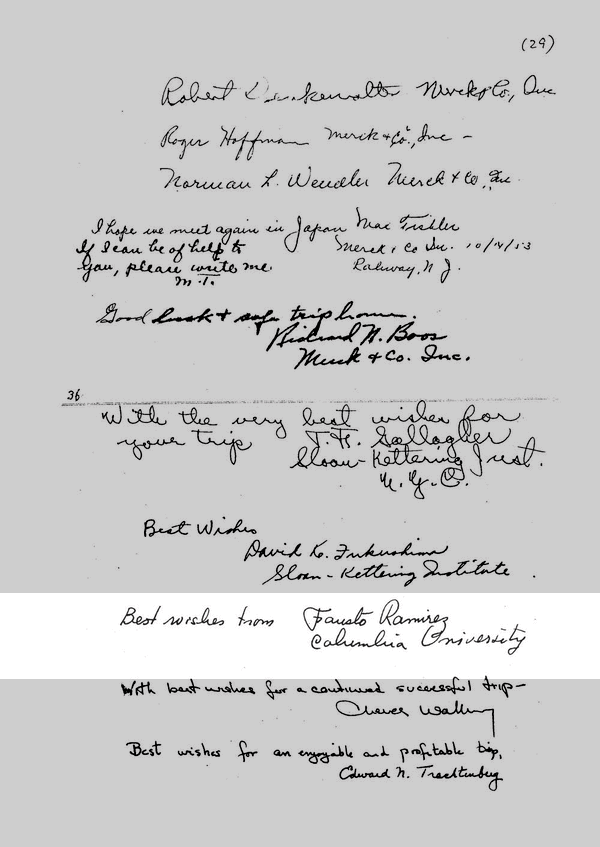 (29)
Robert Denkewalter Merck & Co., Inc
Roger Hoffman Merck & Co., Inc -
Norman L. Wendler Merck & Co., Inc.
I hope we meet again in Japan Max Tishler
If I can be of help to Merck & Co Inc. 10/14/53
you, please write me Rahway, N J.
M.T.
Good luck & safe trip home.
Richard H. Boos
Merck & Co. Inc.
36
With the very best wishes for
your trip T. F. Gallagher
Sloan-Kettering Inst.
N.Y.C.
Best Wishes
David K. Fukushima
Sloan-Kettering Institute
Best wishes from Fausto Ramirez
Columbia University
With best wishes for a continued successful trip-
Cheves Walling
Best wishes for an enjoyable and profitable trip,
Edward N. Trachtenberg